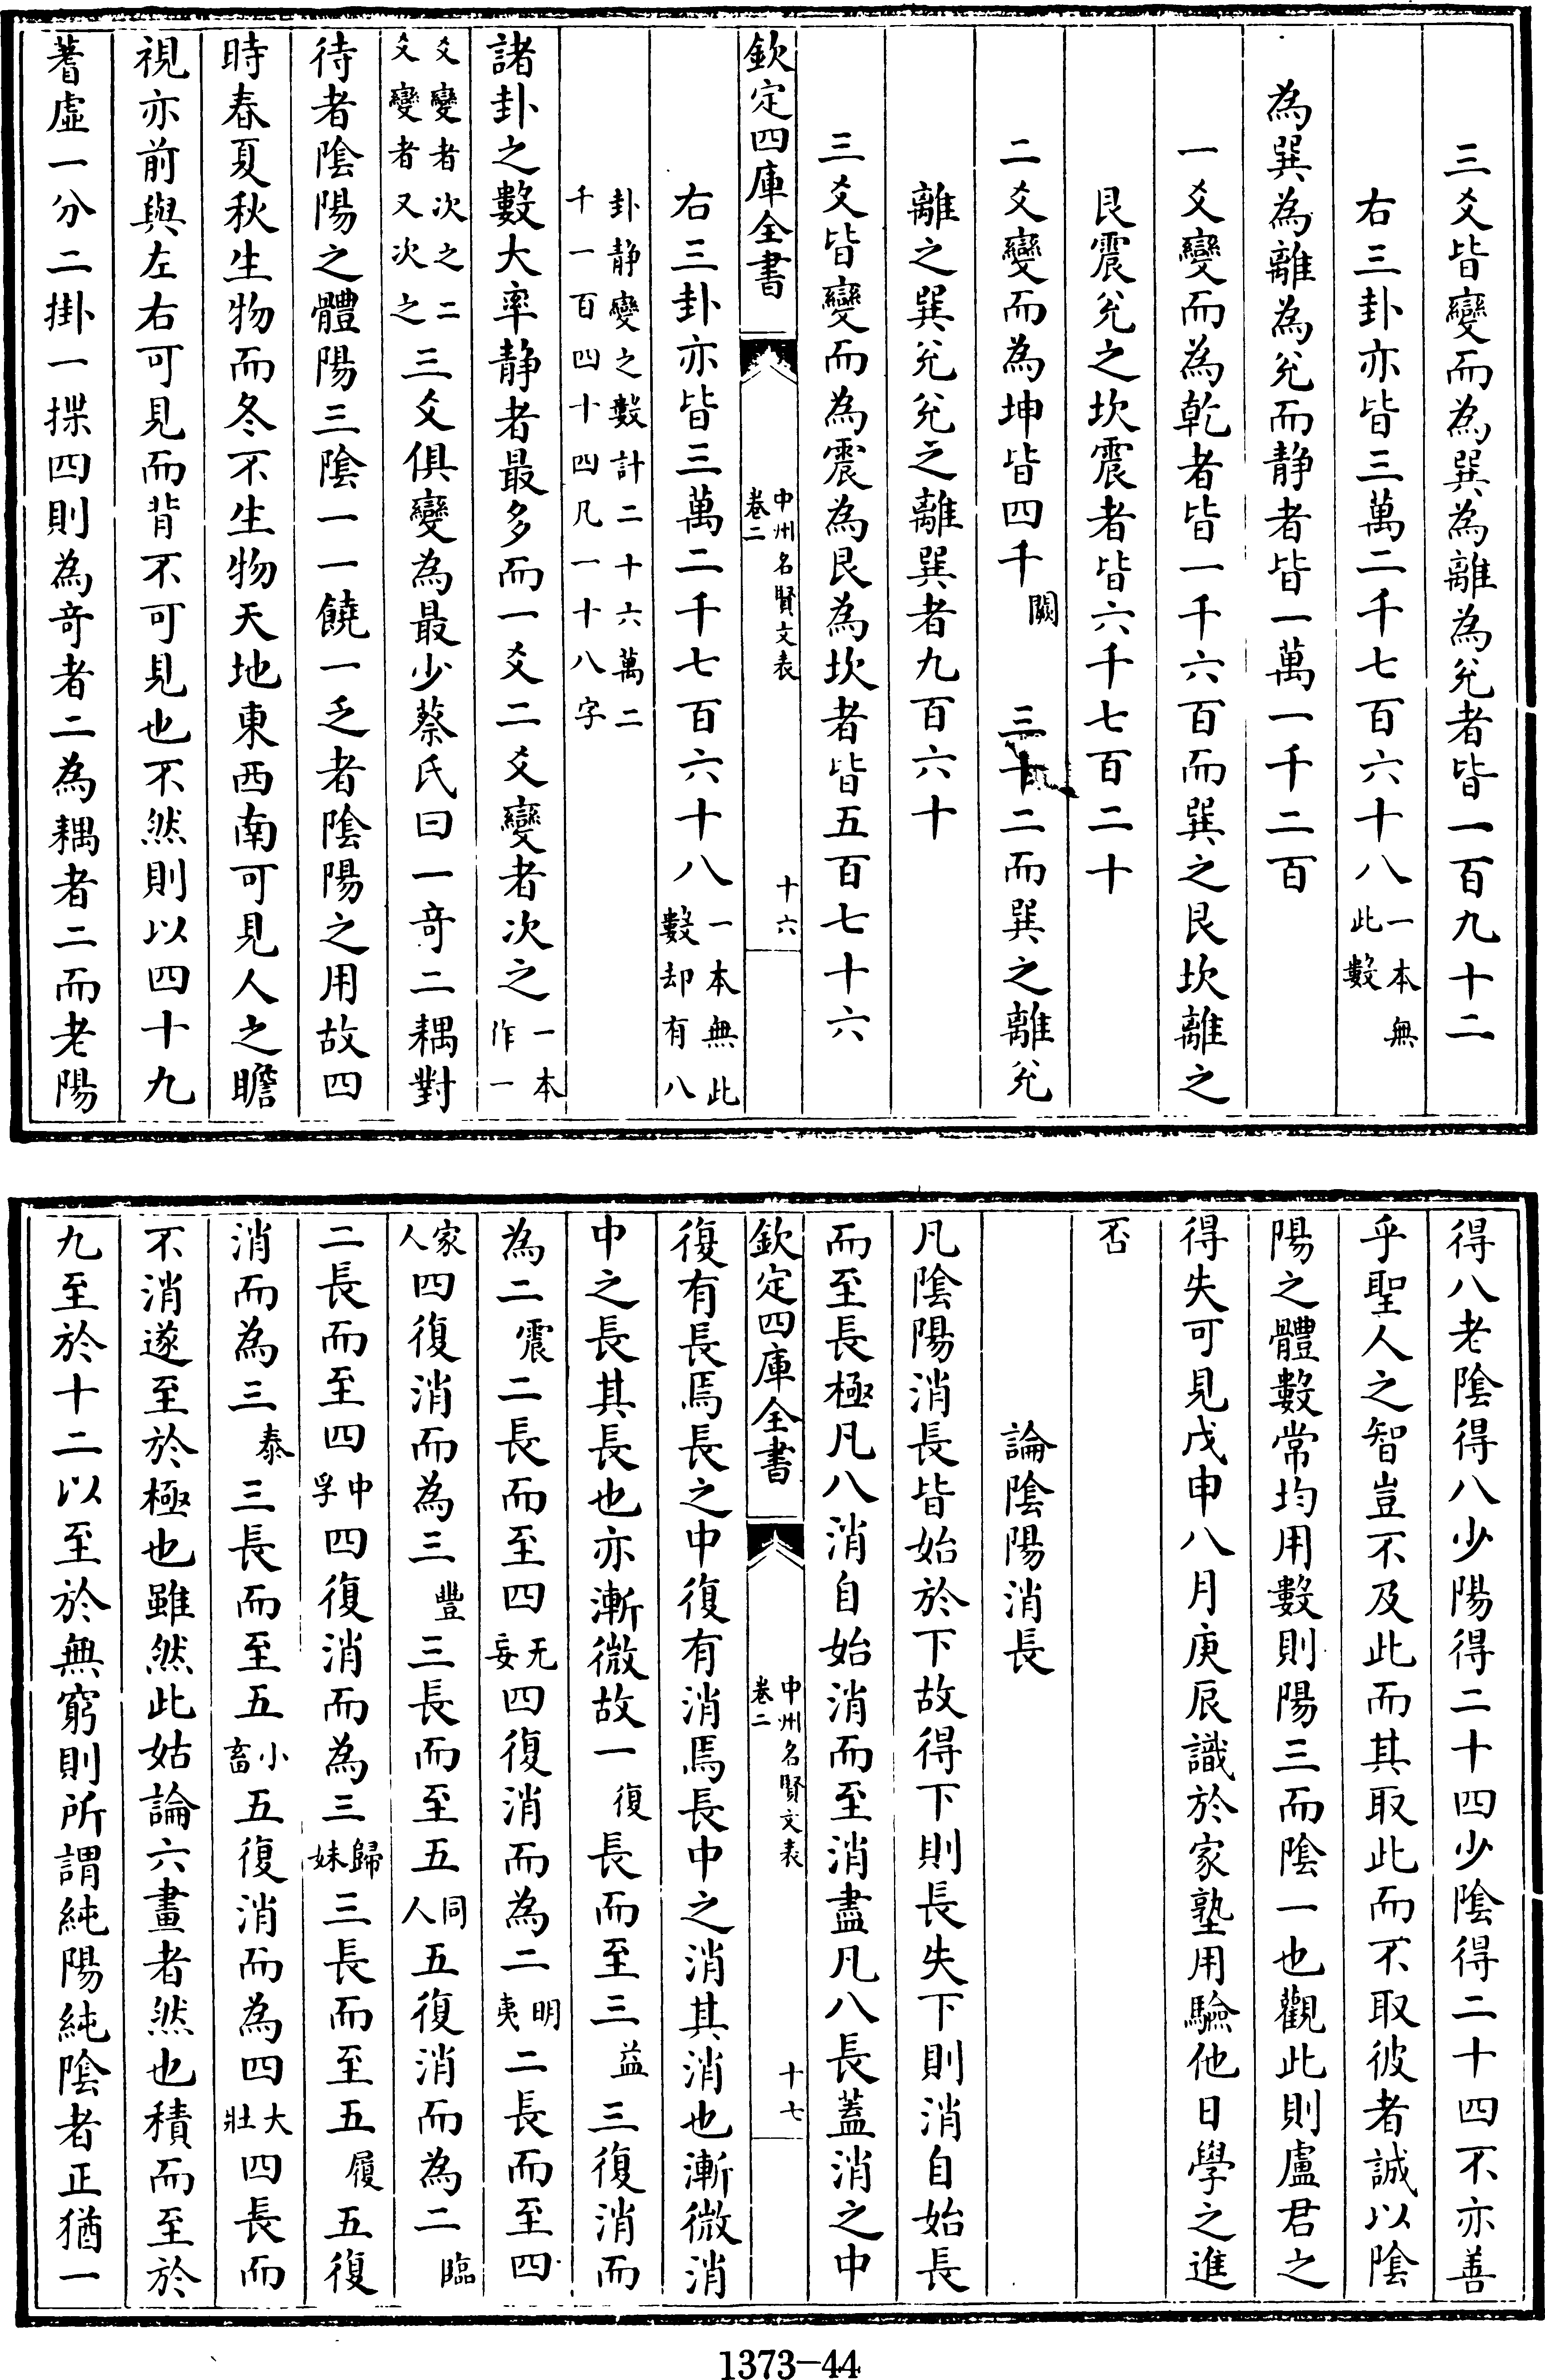 三爻皆變而為巽為離為兊者皆一百九十二
右三卦亦皆三萬二千七百六十八一本無此數
為巽為離為兊而静者皆一萬一千二百
一爻變而為乾者皆一千六百而巽之艮坎離之
艮震兊之坎震者皆六千七百二十
二爻變而為坤皆四千闕 三十二而巽之離兊
離之巽兊兊之離巽者九百六十
三爻皆變而為震為艮為坎者皆五百七十六
欽定四庫全書 中州名賢文表 卷二 十六
右三卦亦皆三萬二千七百六十八一本無此數却有八
卦静變之數計二十六萬二千一百四十四凡一十八字
諸卦之數大率静者最多而一爻二爻變者次之一本作一
爻變者次之二爻變者又次之三爻俱變為最少蔡氏曰一奇二耦對
待者陰陽之體陽三陰一一饒一乏者陰陽之用故四
時春夏秋生物而冬不生物天地東西南可見人之瞻
視亦前與左右可見而背不可見也不然則以四十九
蓍虛一分二掛一揲四則為奇者二為耦者二而老陽
得八老陰得八少陽得二十四少陰得二十四不亦善
乎聖人之智豈不及此而其取此而不取彼者誠以陰
陽之體數常均用數則陽三而陰一也觀此則盧君之
得失可見戊申八月庚辰識於家塾用驗他日學之進
否
論陰陽消長
凡陰陽消長皆始於下故得下則長失下則消自始長
而至長極凡八消自始消而至消盡凡八長蓋消之中
欽定四庫全書 中州名賢文表 卷二 十七
復有長焉長之中復有消焉長中之消其消也漸微消
中之長其長也亦漸微故一復長而至三益三復消而
為二震二長而至四无妄四復消而為二明夷二長而至四
家人四復消而為三豐三長而至五同人五復消而為二臨
二長而至四中孚四復消而為三歸妹三長而至五履五復
消而為三泰三長而至五小畜五復消而為四大壯四長而
不消遂至於極也雖然此姑論六畫者然也積而至於
九至於十二以至於無窮則所謂純陽純陰者正猶一
1373-44